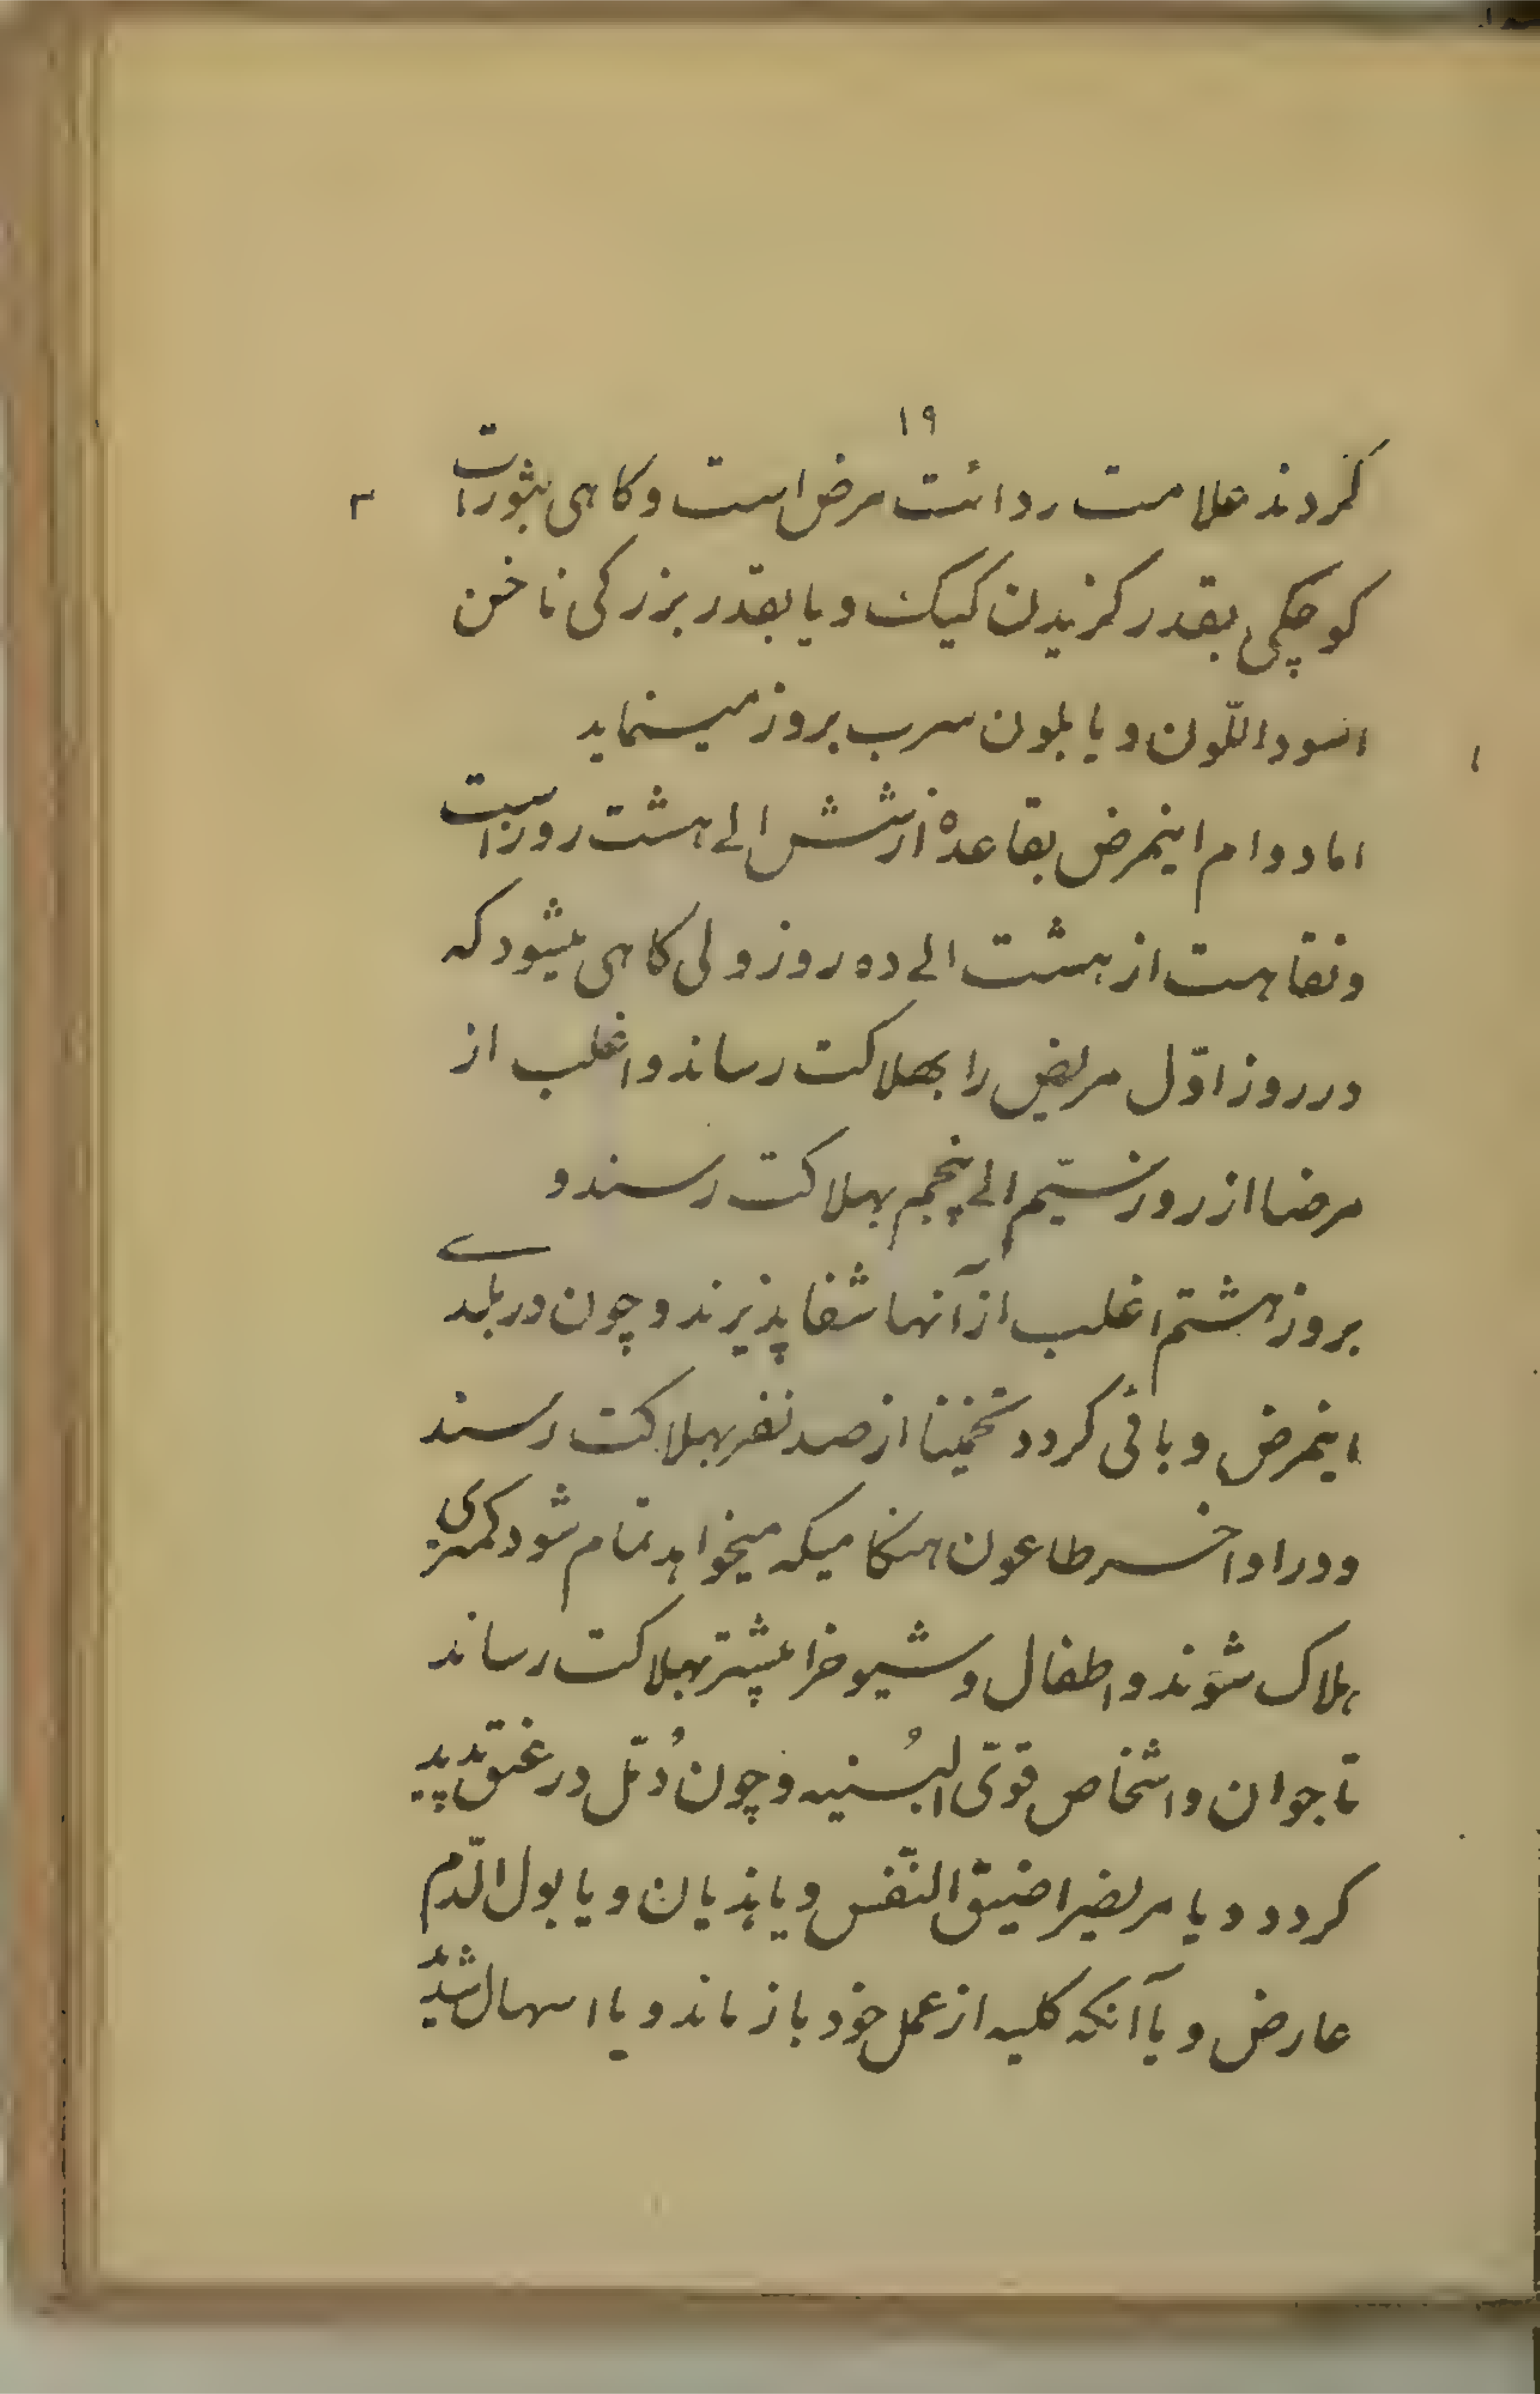 ۱۹
کردند علامت ردائت مرض است و کاهی بثورات
کوچکی بقدر کزیدن کیک و یا بقدر بزرکی ناخن
اسود اللّون و یا بلون سرب بروز مینماید
اما دوام اینمرض بقاعدهٔ از شش الی هشت روز است
و نقاهت از هشت الی ده روز ولی کاهی میشود که
در روز اوّل مریض را بهلاکت رساند و اغلب از
مرضا از روز سیّم الی پنجم بهلاکت رسند و
بروز هشتم اغلب از آنها شفا پذیرند و چون در بلدی
اینمرض وبائی کردد تخمینا از صد نفر بهلاکت رسند
و در اواخر طاعون هنکامیکه میخواهد تمام شود کمتری
هلاک شوند و اطفال و شیوخرا بیشتر بهلاکت رساند
تا جوان و اشخاص قوّی البُنیه و چون دُمّل در عنق پدید
کردد و یا مریضرا ضیق النّفس و یا هذیان و یا بول الدّم
عارض و یا آنکه کلیه از عمل خود باز ماند و یا اسهال شدید